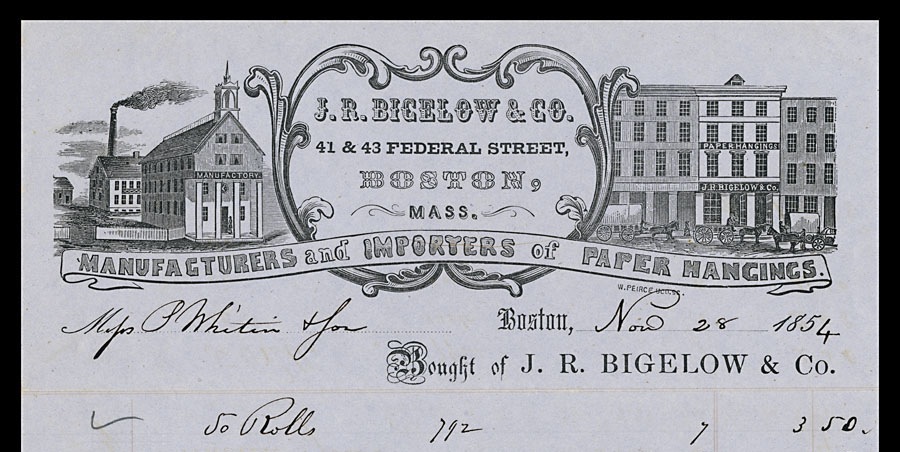 J. R. BIGELOW & CO.
41 & 43 FEDERAL STREET,
BOSTON,
MASS.
MANUFACTORY.
PAPER HANGINGS
J.R. BIGELOW & Co.
MANUFACTURERS and IMPORTERS of PAPER HANGINGS.
W. PEIRCE
Messs P Whitin & Son Boston, Nov 28 1854
Bought of J. R. BIGELOW & Co.
50 Rolls 792 7 3 50.